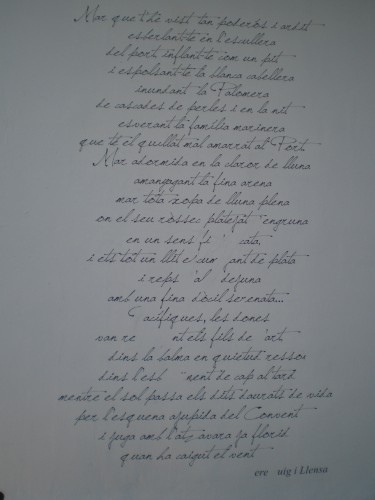 Mar que t'he vist tan poderós i ardit
esberlant-te en l'escullera
del port inflant-te com un pit
i espolsant-te la blanca cabellera
inundant la Palomera
de cascades de perles i en la nit
esverant la família marinera
que té el quillat mal amarrat al Port
Mar adormida en la claror de lluna
amanyagant la fina arena
mar tota xopa de lluna plena
on el seu ròssec platejat engruna
en un sens fi cata,
i ets tot un llit escum jant de plata
i reps al dejuna
amb una fina dòcil serenata...
acífiques, les dones
van re nt els fils de art
dins la calma en quietud resso
dins l'esb nent de cap al tard
mentre el sol passa els dits daurats de vida
per l'esquena ajupida del Convent
i juga amb l'atzavara ja florid
quan ha caigut el vent
ere uig i Llensa